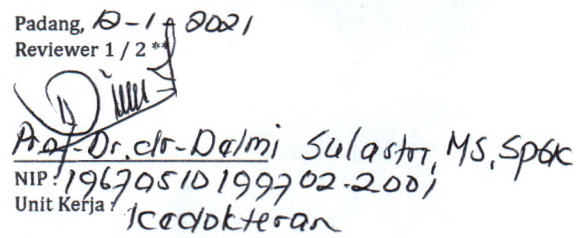 Padang, 12-1-2021
Reviewer 1 / 2 **
Prof. Dr. dr. Delmi Sulastri, MS, SpGK
NIP : 19670510199702.2001
Unit Kerja : kedokteran